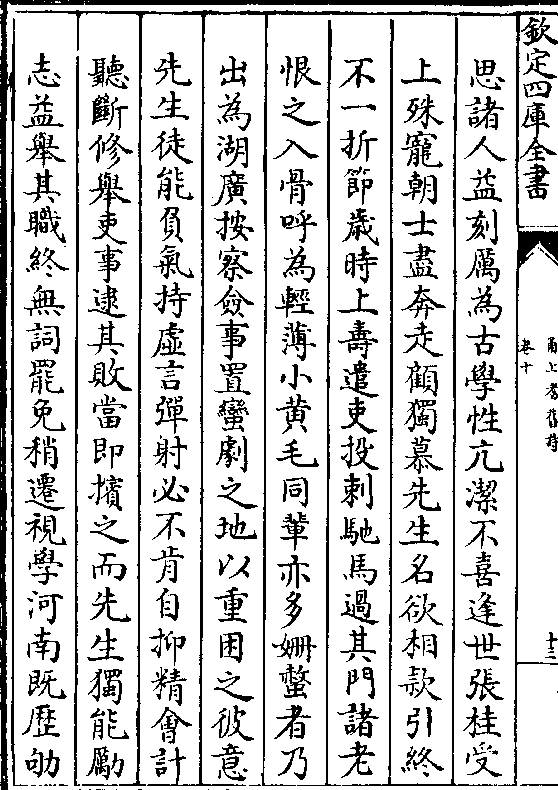 欽定四庫全書
甬上耆舊詩
卷十
十三
思諸人益刻厲為古學性亢潔不喜逢世張桂受
上殊寵朝士盡奔走顧獨慕先生名欲相款引終
不一折節歳時上壽遣吏投刺馳馬過其門諸老
恨之入骨呼為輕薄小黄毛同輩亦多姍螫者乃
出為湖廣按察僉事置蠻劇之地以重困之彼意
先生徒能負氣持虚言彈射必不肯自抑精會計
聽斷修舉吏事逮其敗當即擯之而先生獨能勵
志益舉其職終無詞罷免稍遷視學河南既歴劬